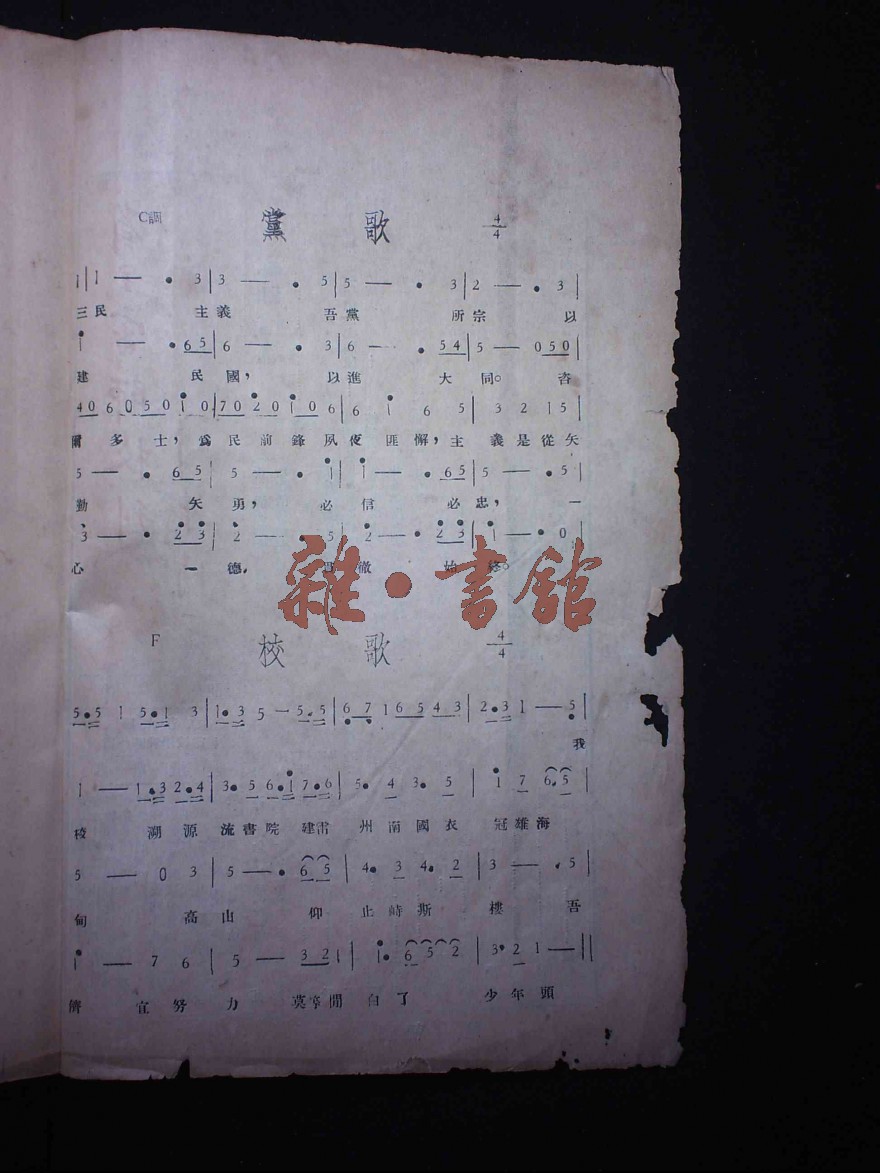 C調 黨 歌 4/4
1|1 — • 3|3 — • 5|5 — • 3|2 — • 3|
三民 主義 吾黨 所宗 以
1 — •65|6 — • 3|6 — • 54|5 — 050|
建 民國，以進 大同。咨
40 60 50 10|70 20 10 6|6 1 6 5|3 2 1 5|
爾多士，爲民前鋒夙夜匪懈，主義是從矢
5 — • 65|5 — • 1|1 — • 65|5 — • 5|
勤 矢勇，必信 必忠，一
3 — • 23|2 — • 5|2 — • 23|1 — • 0|
心 一德， 徹 始終。
雜•書舘
F 校 歌 4/4
5•5 1 5•1 3|1•3 5 — 5.5|6 7 1 6 5 4 3|2•3 1 — 5|
我
1 — 1•3 2•4|3• 5 6•1 7•6|5• 4 3• 5|1 7 6.5|
校 溯源流書院建雷州南國衣冠雄海
5 — 0 3|5 — • 6 5|4• 3 4• 2|3 — • 5|
甸 高山仰止峙斯樓吾
1 — 7 6|5 — 3 2 1|1• 6 5 2|3• 2 1 —||
儕宜努力莫等閒白了少年頭